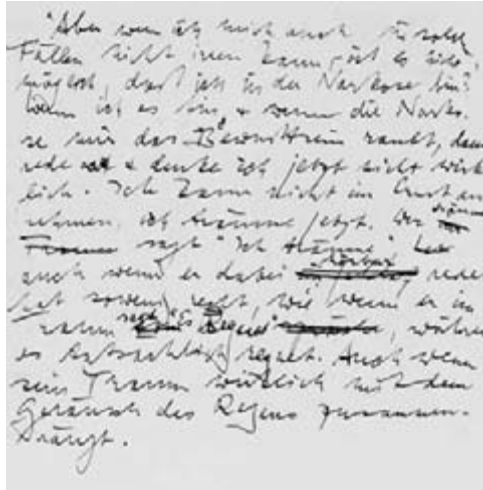 "Aber wenn ich mich auch in solch
Fällen nicht irren kann, – ist es nicht
möglich, daß ich in der Narkose bin?"
Wenn ich es bin, & wenn die Narko-
se mir das Bewußtsein raubt, dann
rede & denke ich jetzt nicht wirk
lich. Ich kann nicht im Ernst an
nehmen, ich träume jetzt. Wer träumend
sagt "Ich träume"
auch wenn er dabei hörbar rede
hat sowenig recht, wie wenn er im
Traum sagt "Es regnet", während
es tatsächlich regnet. Auch wenn
sein Traum wirklich mit dem
Geräusch des Regens zusammen-
hängt.